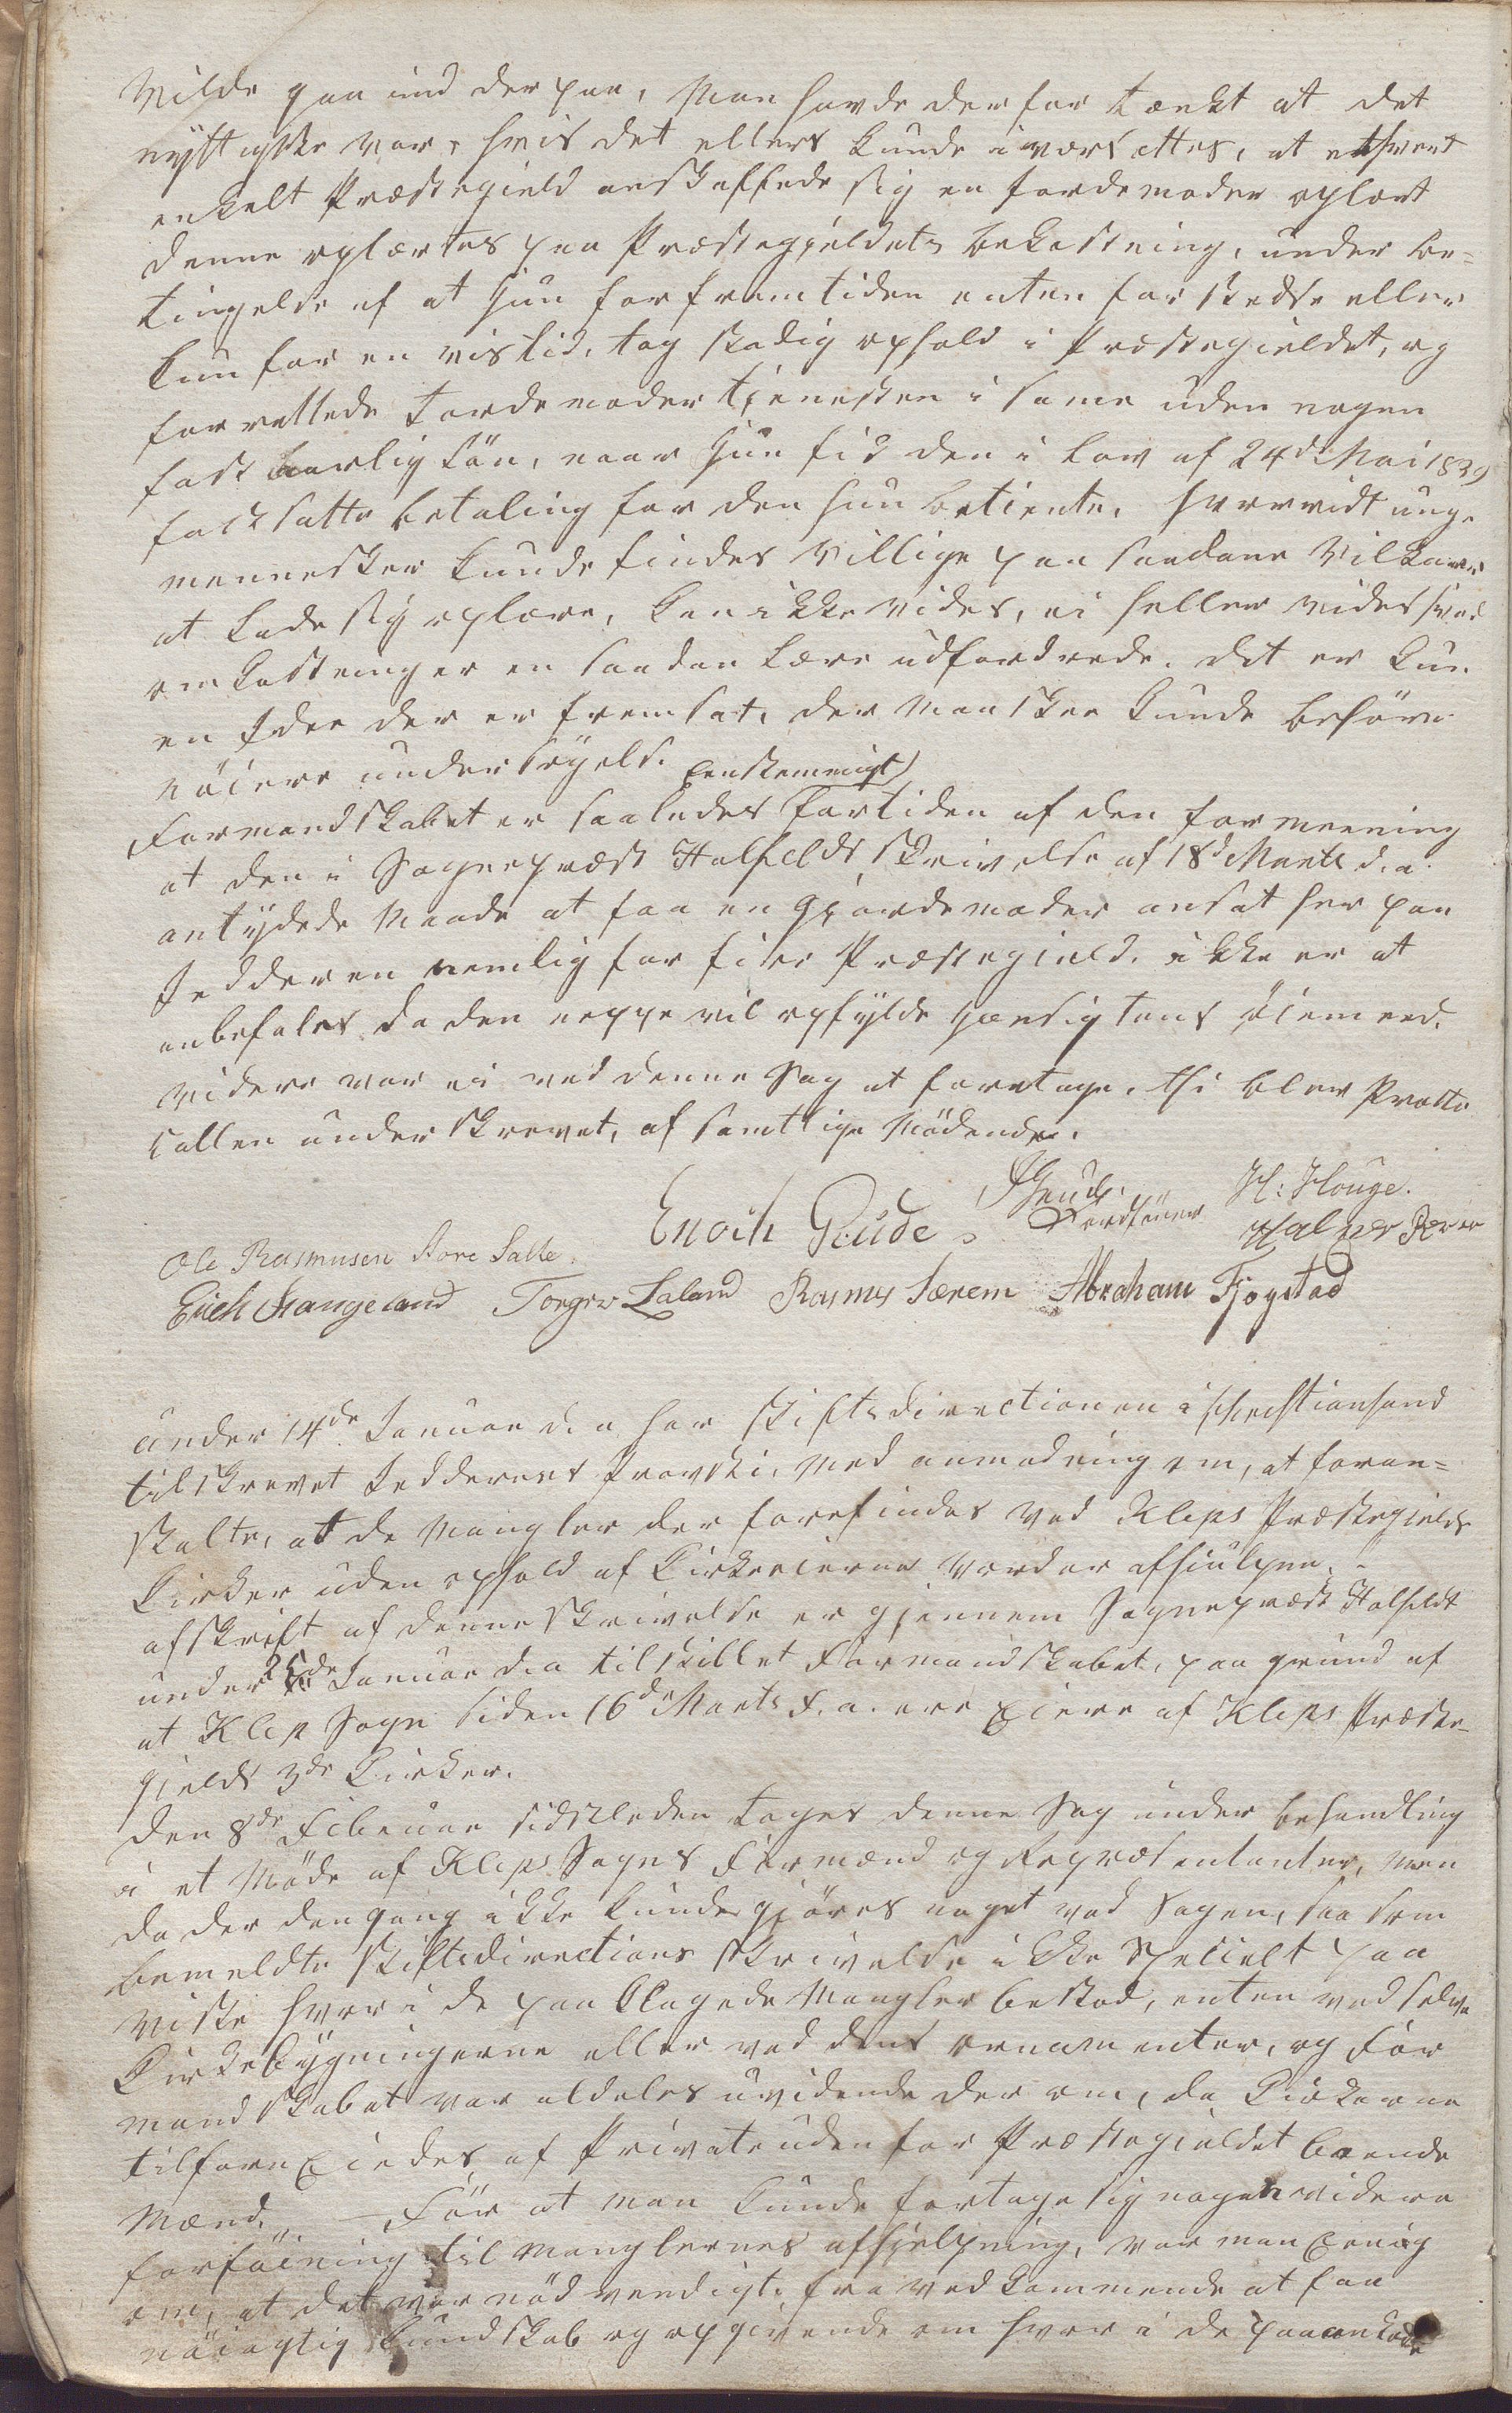 Vilde gaa ind der paa, Man havde derfor tænkt at det
nyttigste var, hvis det ellers kunde iværksættes, at ethvert
enkelt Præstegield anskaffede sig en Jordemoder oplært
denne oplærtes paa Præstegieldets bekostning, under be=
tingelse af at hun for fremtiden enten for stedse eller
kun for en vis tid, tog stadig ophold i Præstegieldet, og
forrettede Jordemoder tjenesten i samme uden nogen
fast aarlig Løn, naar hun fik den i Lov af 24d Mai 1839
fastsatte betaling for den hun betiente. Hvorvidt unge
mennesker kunde findes Villige paa saadane Vilkaar
at lade sig oplære, kan ikke vides, ei heller vides hvad
omkostninger en saadan Lære udfordrede. Det er kun
en Idee der er fremsat, der Maaskee kunde behøve
nøiere undersøgelse.
Formandskabet er saaledes (eenstemmigt) for tiden af den formeening
at den i Sognepræst Halfeldts skrivelse af 18d Marts d.a.
antydede Maade at faa en Gjordemoder ansat her paa
Jedderen nemlig for fire Præstegield, ikke er at
anbefales da den neppe vil opfylde Hensigtens øiemeed.
Videre var ei ved denne Sag at foretage, thi blev Proto
collen underskrevet, af samtlige Mødende.
Enoch Gude. H: Houge.
Ordfører
Ole Rasmusen Store Salte.
Erich Stangeland Torger Laland Rasmus Særem Abraham Fjogstad

Under 14de Januar d.a. har Stiftsdirectionen i Christiansand
tilskrevet Jedderens Provsti, med anmodning om, at foran=
stalte, at de Mangler der forefindes ved Kleps Præstegields
Kirker uden ophold af Kirkeeierne vorder afhiulpen.
afskrift af denne skrivelse er gjennem Sognepræst Halfeldt
under 25de Januar d.a. tilstillet Formandskabet, paa grund af
at Klep Sogn siden 16de Marts f.a. ere Eiere af Kleps Præste=
gjelds 3de Kirker.
Den 8de Februar sidstleden toges denne Sag under behandling
i et Møde af Kleps Sogns Formænd og Repræsentanter, men
da der dengang ikke kunde gjøres noget ved Sagen, saa som
bemeldte Stiftsdirections skrivelse ikke Specielt paa
viste hvor i de paa klagede Mangler bestod, enten ved selve
Kirkebygningerne eller ved dens ornamenter, og For
mandskabet var aldeles uvidende der om, da Kirkerne
tilforn Eiedes af Private uden for Præstegieldet boende
Mænd. Før at man kunde foretage sig nogen videre
forføining til Manglernes afhjelpning, var man Eenig
om, at det var nødvendigt, fra vedkommende at faa
nøiagtig kundskab og opgivende om hvor i de paaankede